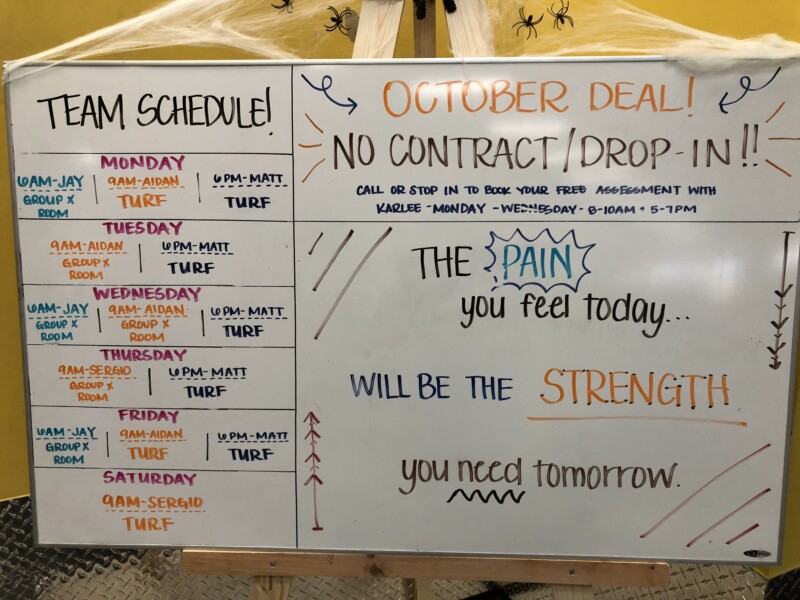 TEAM SCHEDULE!
MONDAY
6AM-JAY
GROUP X
ROOM
9AM-AIDAN
TURF
6PM-MATT
TURF
TUESDAY
9AM-AIDAN
GROUP X
ROOM
6PM-MATT
TURF
WEDNESDAY
6AM-JAY
GROUP X
ROOM
9AM-AIDAN
GROUP X
ROOM
6PM-MATT
TURF
THURSDAY
9AM-SERGIO
GROUP X
ROOM
6PM-MATT
TURF
FRIDAY
6AM-JAY
GROUP X
ROOM
9AM-AIDAN
TURF
6PM-MATT
TURF
SATURDAY
9AM-SERGIO
TURF
OCTOBER DEAL!
NO CONTRACT/DROP-IN!!
CALL OR STOP IN TO BOOK YOUR FREE ASSESSMENT WITH
KARLEE - MONDAY - WEDNESDAY - 8-10AM + 5-7PM
THE PAIN
you feel today...
WILL BE THE STRENGTH
you need tomorrow.